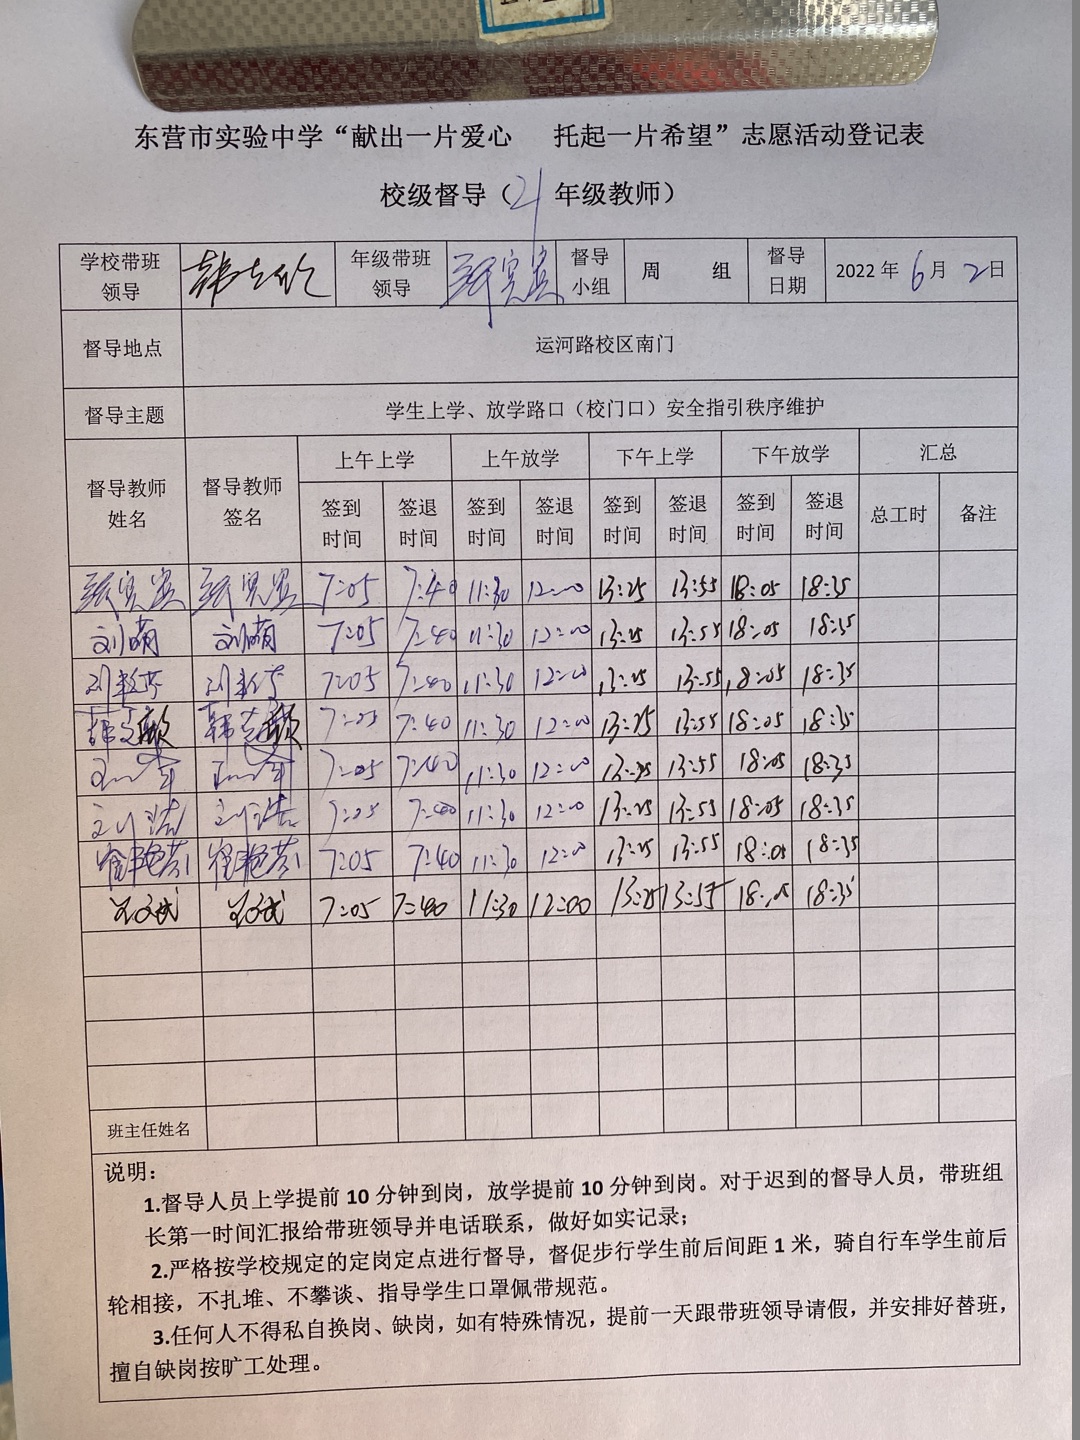 东营市实验中学“献出一片爱心 托起一片希望”志愿活动登记表
校级督导（21年级教师）
学校带班领导 年级带班领导 督导小组 周 组 督导日期 2022年6月2日
督导地点 运河路校区南门
督导主题 学生上学、放学路口（校门口）安全指引秩序维护
督导教师姓名 督导教师签名 上午上学 上午放学 下午上学 下午放学 汇总
签到时间 签退时间 签到时间 签退时间 签到时间 签退时间 签到时间 签退时间 总工时 备注
7:05 7:40 11:30 12:00 13:25 13:55 18:05 18:35
刘萌 刘萌 7:05 7:40 11:30 12:00 13:25 13:55 18:05 18:35
7:05 7:40 11:30 12:00 13:25 13:55 18:05 18:35
7:05 7:40 11:30 12:00 13:25 13:55 18:05 18:35
7:05 7:40 11:30 12:00 13:25 13:55 18:05 18:35
7:05 7:40 11:30 12:00 13:25 13:55 18:05 18:35
崔艳芬 崔艳芬 7:05 7:40 11:30 12:00 13:25 13:55 18:05 18:35
7:05 7:40 11:30 12:00 13:25 13:55 18:05 18:35
班主任姓名
说明：
1.督导人员上学提前10分钟到岗，放学提前10分钟到岗。对于迟到的督导人员，带班组
长第一时间汇报给带班领导并电话联系，做好如实记录；
2.严格按学校规定的定岗定点进行督导，督促步行学生前后间距1米，骑自行车学生前后
轮相接，不扎堆、不攀谈、指导学生口罩佩带规范。
3.任何人不得私自换岗、缺岗，如有特殊情况，提前一天跟带班领导请假，并安排好替班，
擅自缺岗按旷工处理。